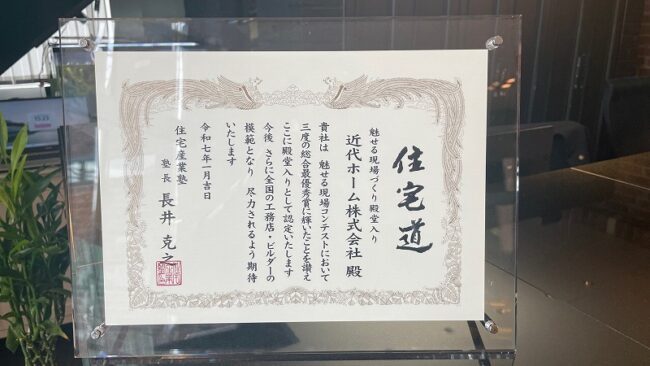 住宅道
魅せる現場づくり殿堂入り
近代ホーム株式会社 殿
貴社は 魅せる現場コンテストにおいて
三度の総合最優秀賞に輝いたことを讃え
ここに殿堂入りとして認定いたします
今後 さらに全国の工務店・ビルダーの
模範となり 尽力されるよう期待
いたします
令和七年一月吉日
住宅産業塾
塾長 長井 克之